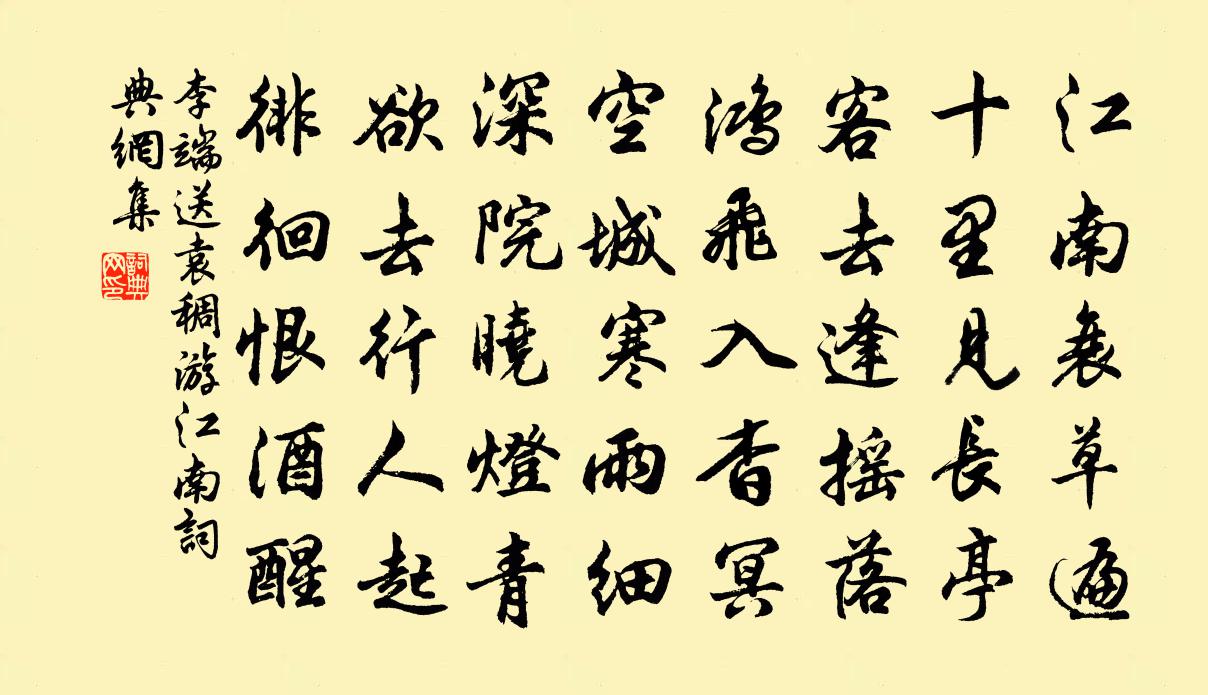 江南衰草遍
十里見長亭
客去逢摇落
鴻飛入杳冥
空城寒雨細
深院曉燈青
欲去行人起
徘徊恨酒醒
李端送袁稠游江南詞
典網集
詞典
网印